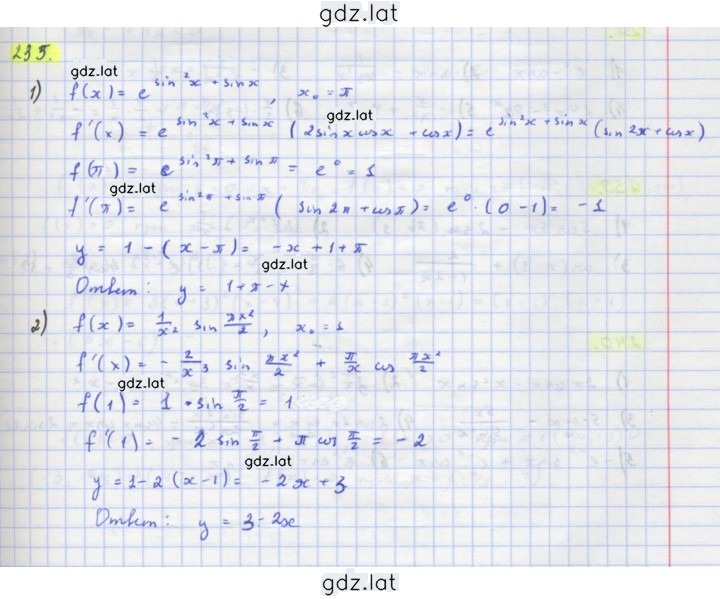 gdz.lat
235.
gdz.lat
1) f(x) = e^{sin²x + sinx}, x₀ = π
gdz.lat
f'(x) = e^{sin²x + sinx} (2sinxcosx + cosx) = e^{sin²x + sinx} (sin2x + cosx)
f(π) = e^{sin²π + sinπ} = e⁰ = 1
gdz.lat
f'(π) = e^{sin²π + sinπ} (sin2π + cosπ) = e⁰ · (0 - 1) = -1
y = 1 - (x - π) = -x + 1 + π
gdz.lat
Ответ: y = 1 + π - x
2) f(x) = 1/x² sin πx²/2, x₀ = 1
f'(x) = - 2/x³ sin πx²/2 + π/x cos πx²/2
gdz.lat
f(1) = 1 · sin π/2 = 1
f'(1) = - 2 sin π/2 + π cos π/2 = - 2
gdz.lat
y = 1 - 2 (x - 1) = - 2x + 3
Ответ: y = 3 - 2x
gdz.lat